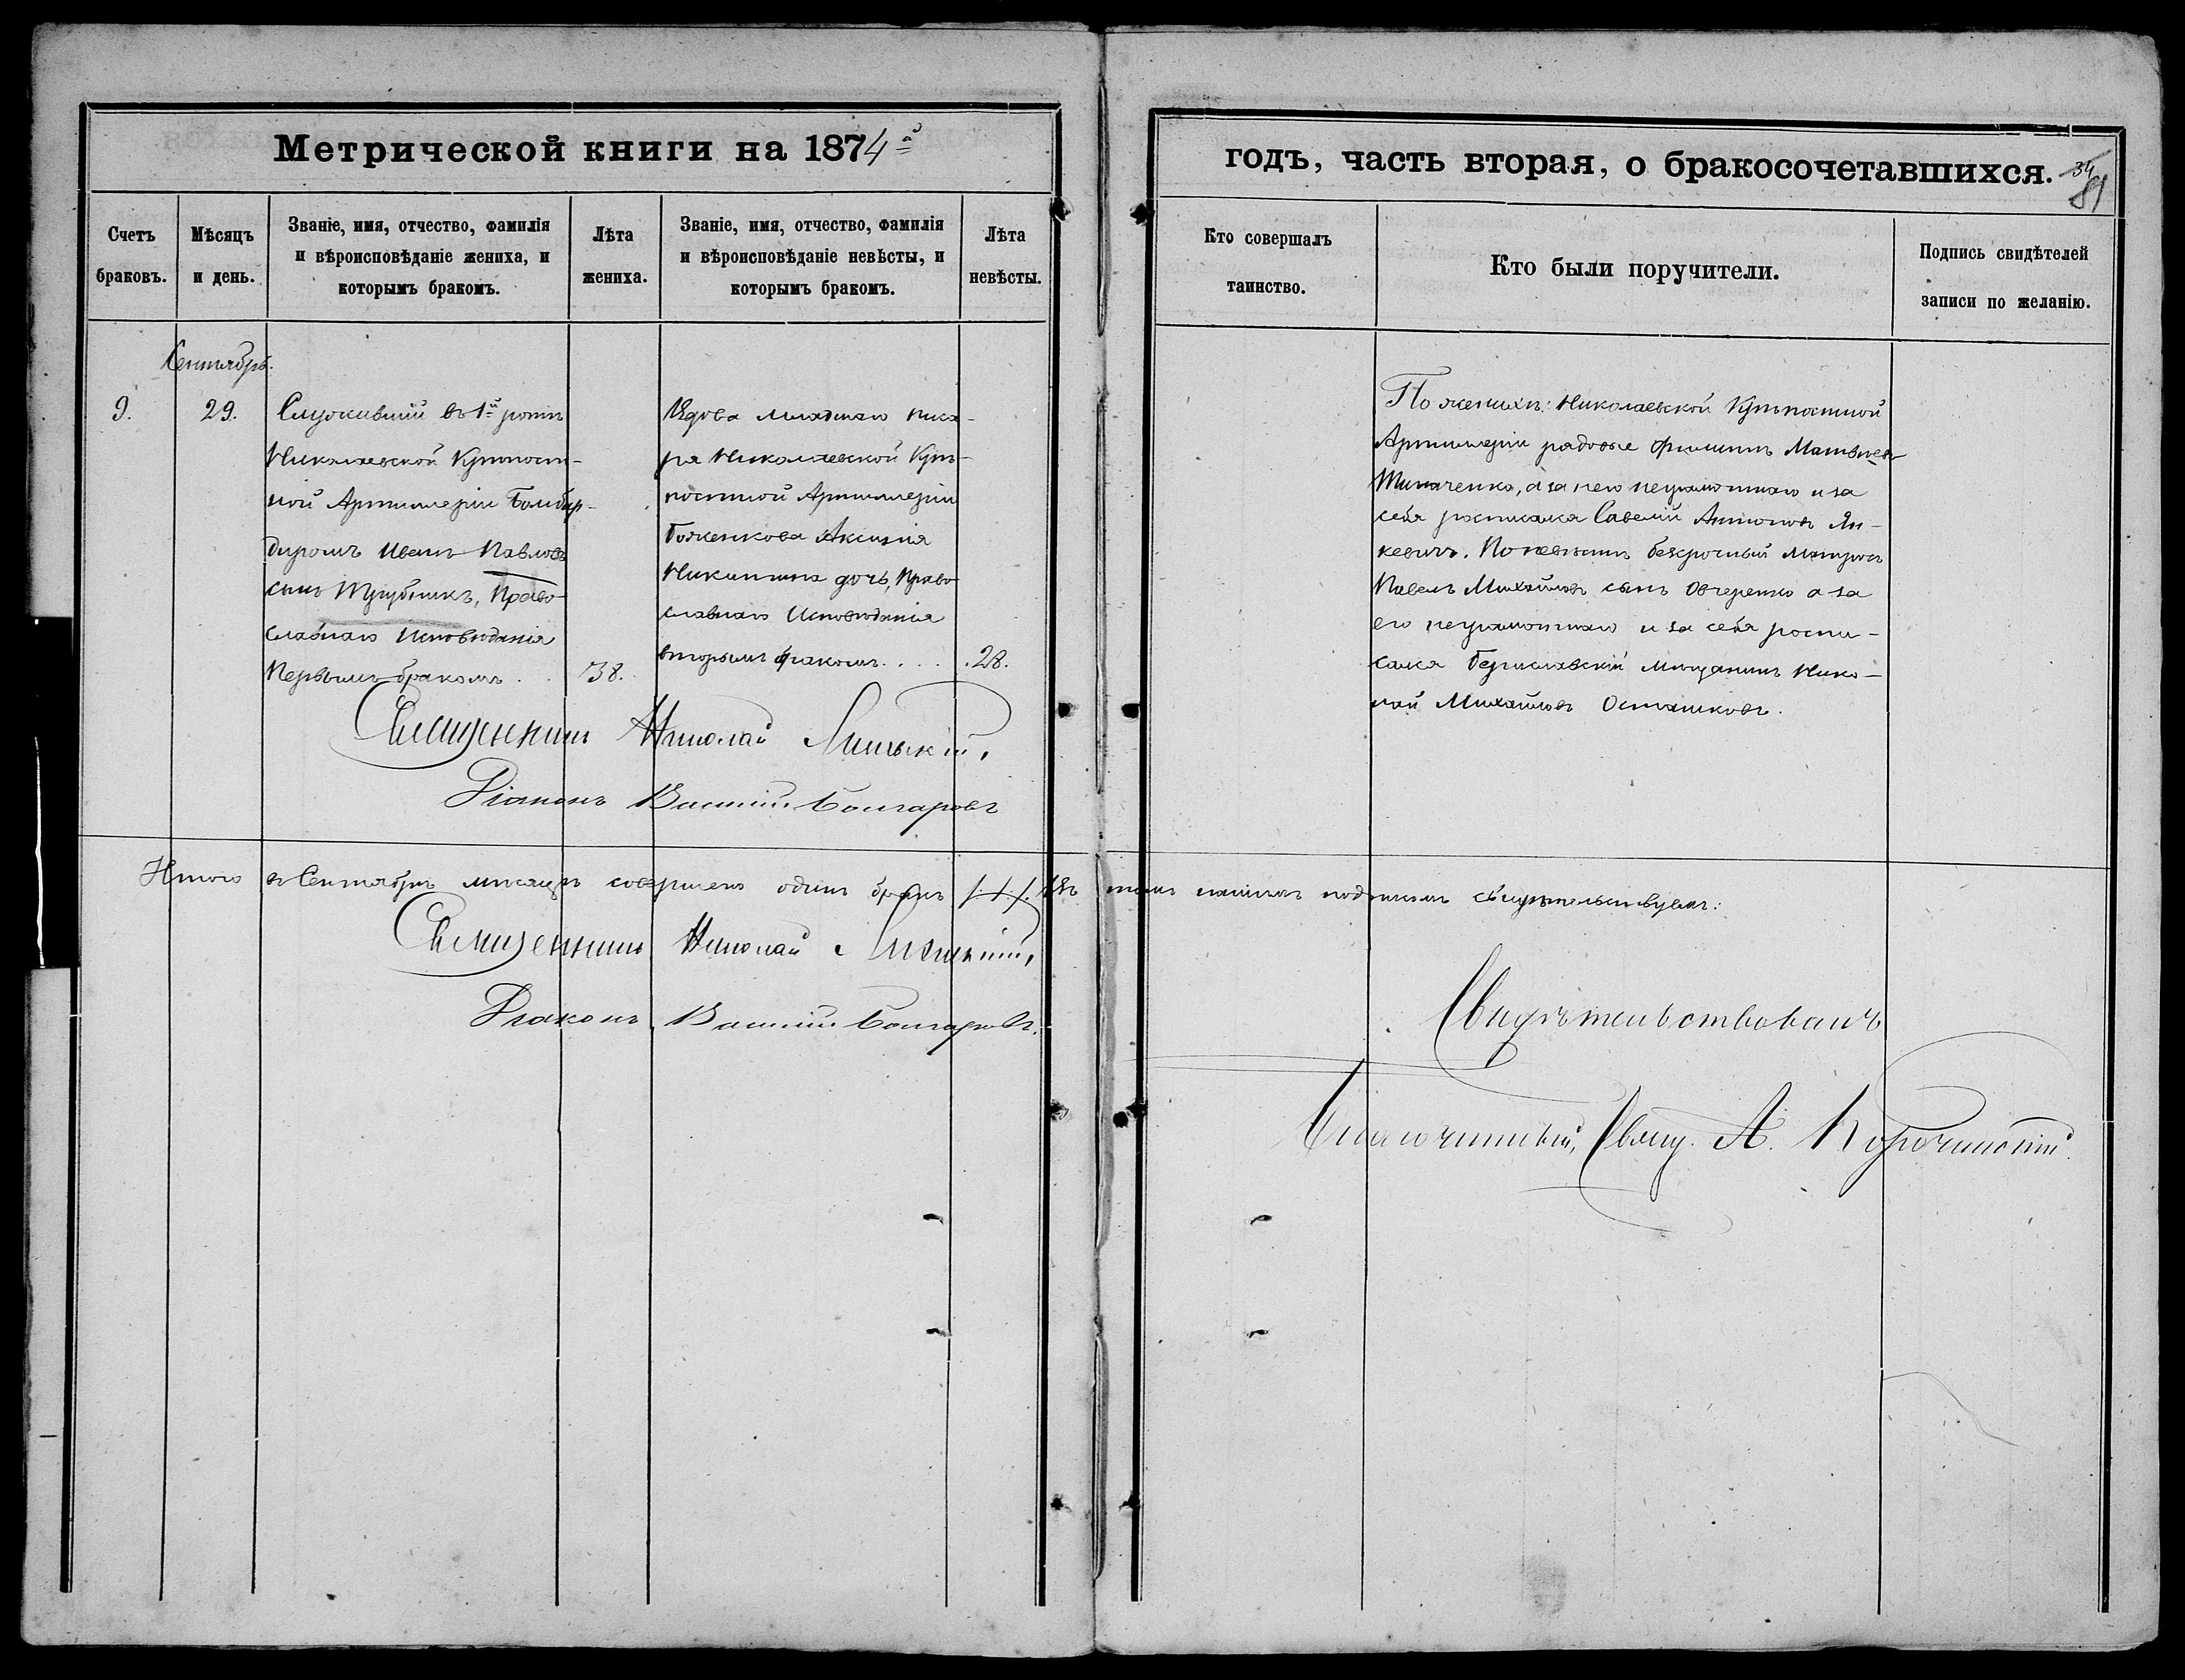 Метрической книги на 1874й
годъ, часть вторая, о бракосочетавшихся.
34
81
Счетъ браковъ.
Мѣсяцъ и день.
Званіе, имя, отчество, фамилія
и вѣроисповѣданіе жениха, и
которымъ бракомъ.
Лѣта жениха.
Званіе, имя, отчество, фамилія
и вѣроисповѣданіе невѣсты, и
которымъ бракомъ.
Лѣта невѣсты.
Кто совершалъ
таинство.
Кто были поручители.
Подпись свидѣтелей
записи по желанію.
Сентябрь.
9.
29.
Служившій въ 1й ротѣ
Николаевской Крѣпост-
ной Артиллеріи Бомбар-
диромъ Иванъ Павловъ
сынъ Трубникъ, Право-
славнаго Исповѣданія
Первымъ бракомъ . .
38.
Вдова младшаго писа-
ря Николаевской Крѣ-
постной Артиллеріи
Боженкова Аксинія
Никитина дочь, Право
славнаго Исповѣданія
вторымъ бракомъ. . . .
28.
Священникъ Николай
Діаконъ Василій Болгаровъ
По женихѣ: Николаевской Крѣпостной
Артиллеріи рядовые Филиппъ Матвѣевъ
а за него неграмотнаго и за
себя росписался Савелій Антоновъ Ян-
кевичъ. По невѣстѣ безсрочный матросъ
Павелъ Михайловъ сынъ Овчеренко а за
его неграмотнаго и за себя роспи-
сался Бериславскій мѣщанинъ Нико-
лай Михайловъ Осташковъ.
Итого въ Сентябрѣ мѣсяцѣ совершенъ одинъ бракъ /.1./. Въ томъ нашимъ подписомъ свидѣтельствуемъ:
Священникъ Николай
Діаконъ Василій Болгаровъ.
Свидѣтельствовалъ
Благочинный, Свящ. А.